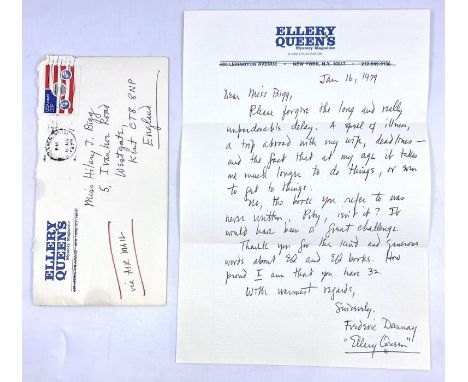 ELLERY
QUEEN'S
Mystery Magazine
LEXINGTON AVENUE • NEW YORK, N.Y. 10017 •
Jan 16, 1979
Dear Miss Bigg,
Please forgive the long and really
unpardonable delay. A spell of illness,
a trip abroad with my wife, deadlines —
and the fact that at my age it takes
me much longer to do things, or even
to get to things.
No, the book you refer to was
never written. Pity, isn't it? It
would have been a great challenge
Thank you for the kind and generous
words about EQ and EQ books. How
proud I am that you have 32.
With warmest regards,
Sincerely,
Frederic Dannay
"Ellery Queen"
Miss Hilary J. Bigg
5, Ivanhoe Road
Westgate,
Kent CT8 8NP
England
via AIR MAIL
ELLERY
QUEEN'S
PM